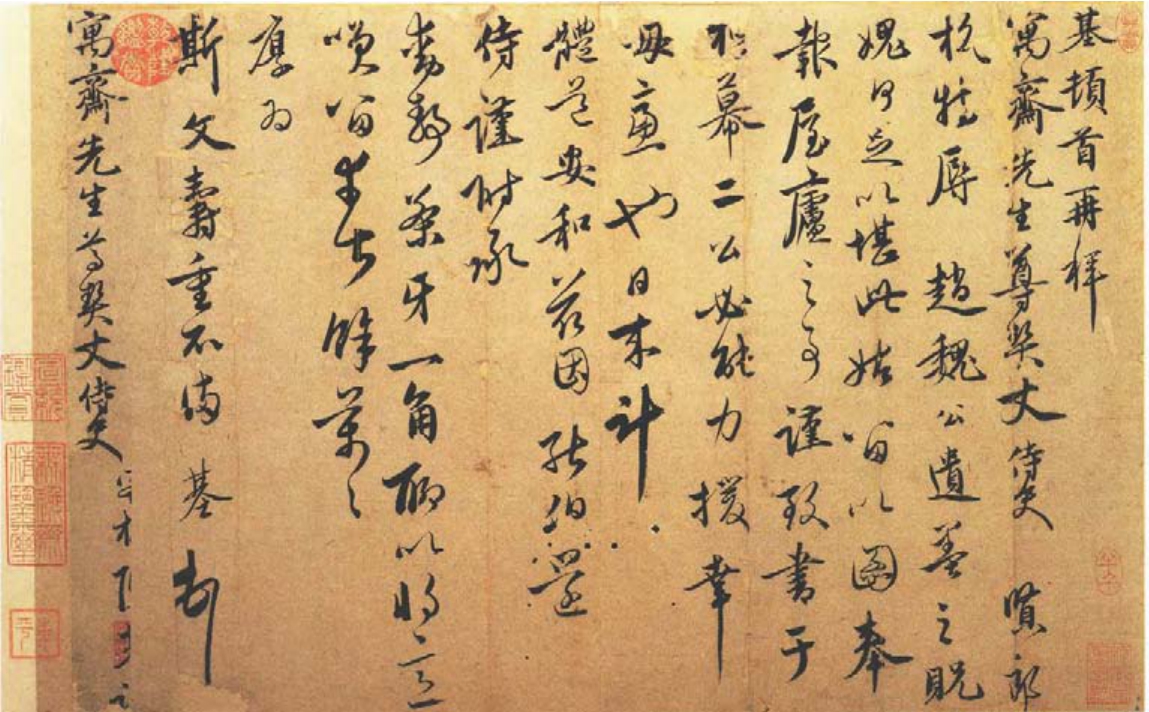 基頓首再拜
寓齋先生尊契丈侍史 賢郎
杭特辱 趙魏公遺墨之貺
愧何足以堪此姑留以圖奉
報屋廬之事謹致書于
松幕二公必能力援幸
毋慮也日來計
體道安和茲因 伯還
侍謹附承
動靜茶牙一角聊以將意
笑留幸甚餘冀
厚為
斯文壽重不備 基 制
寓齋先生尊契丈侍史